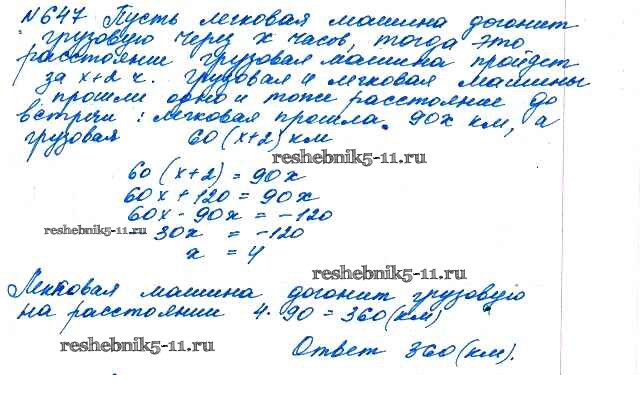 №647 Пусть легковая машина догонит
грузовую через х часов, тогда это
расстояние грузовая машина пройдет
за х+2 ч. Грузовая и легковая машины
прошли одно и тоже расстояние до
встречи: легковая прошла 90х км, а
грузовая 60(х+2) км
reshebnik5-11.ru
60(х+2) = 90х
60х + 120 = 90х
60х - 90х = -120
reshebnik5-11.ru
30х = -120
х = 4
reshebnik5-11.ru
Легковая машина догонит грузовую
на расстоянии 4·90 = 360 (км)
reshebnik5-11.ru
Ответ 360 (км).